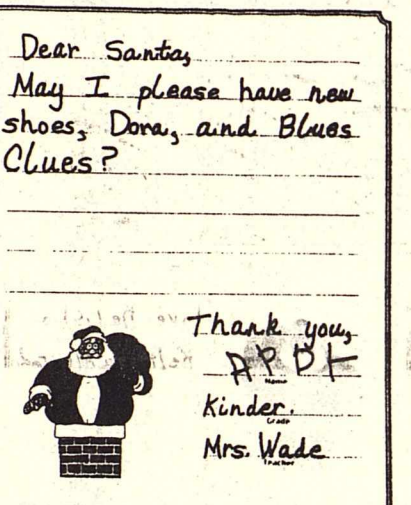 Dear Santa,
May I please have new
shoes, Dora, and Blues
Clues?
Thank you,
Name
Kinder.
Grade
Mrs. Wade
Teacher